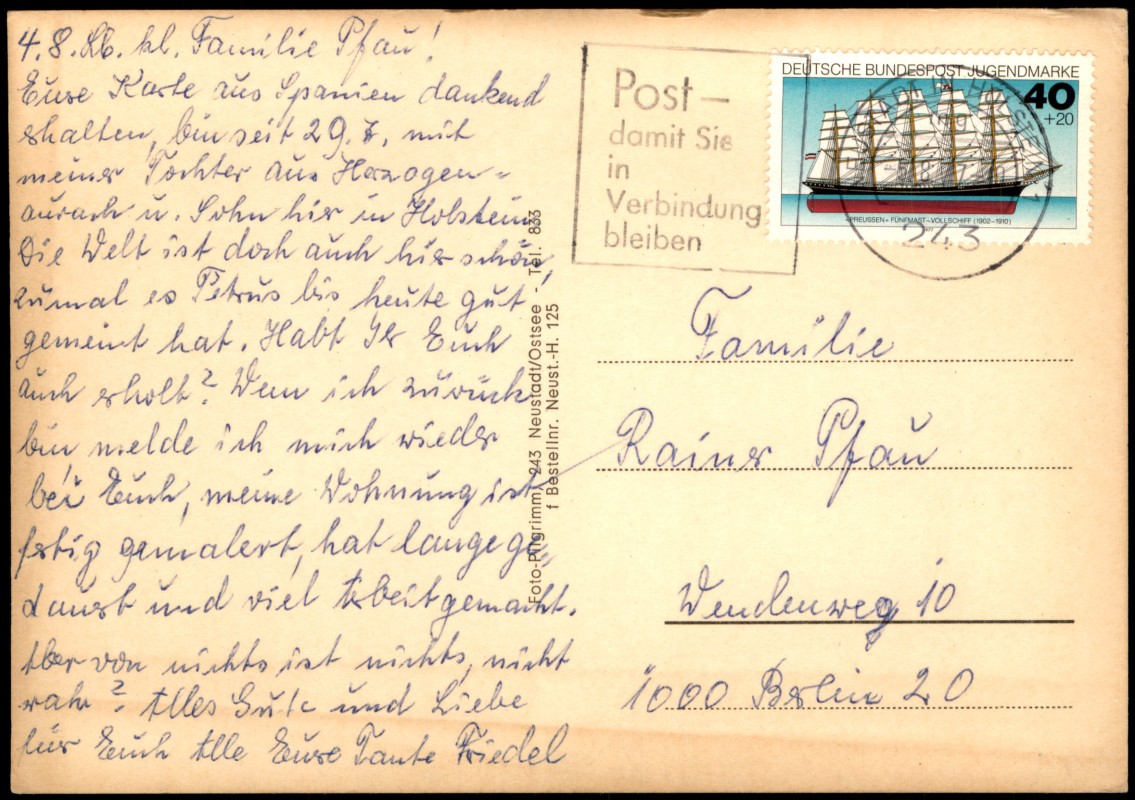 4.8. Lb. kl. Familie Pfau!
Eure Karte aus Spanien dankend
erhalten, bin seit 29.7. mit
meiner Tochter aus Herzogen=
aurach u. Sohn hier in Holstein.
Die Welt ist doch auch hier schön,
zumal es Petrus bis heute gut
gemeint hat. Habt Ihr Euch
auch erholt? Wenn ich zurück
bin melde ich mich wieder
bei Euch, meine Wohnung ist
fertig gemalert, hat lange ge=
dauert und viel Arbeit gemacht.
Aber von nichts ist nichts, nicht
wahr? Alles Gute und Liebe
für Euch Alle Eure Tante Friedel
Foto-Pilgrimm, 243 Neustadt/Ostsee - Tel. 833
f Bestellnr. Neust.-H. 125
Post –
damit Sie
in
Verbindung
bleiben
DEUTSCHE BUNDESPOST JUGENDMARKE
40
+20
»PREUSSEN« FÜNFMAST-VOLLSCHIFF (1902-1910)
1977
243
Familie
Rainer Pfau
Wendenweg 10
1000 Berlin 20